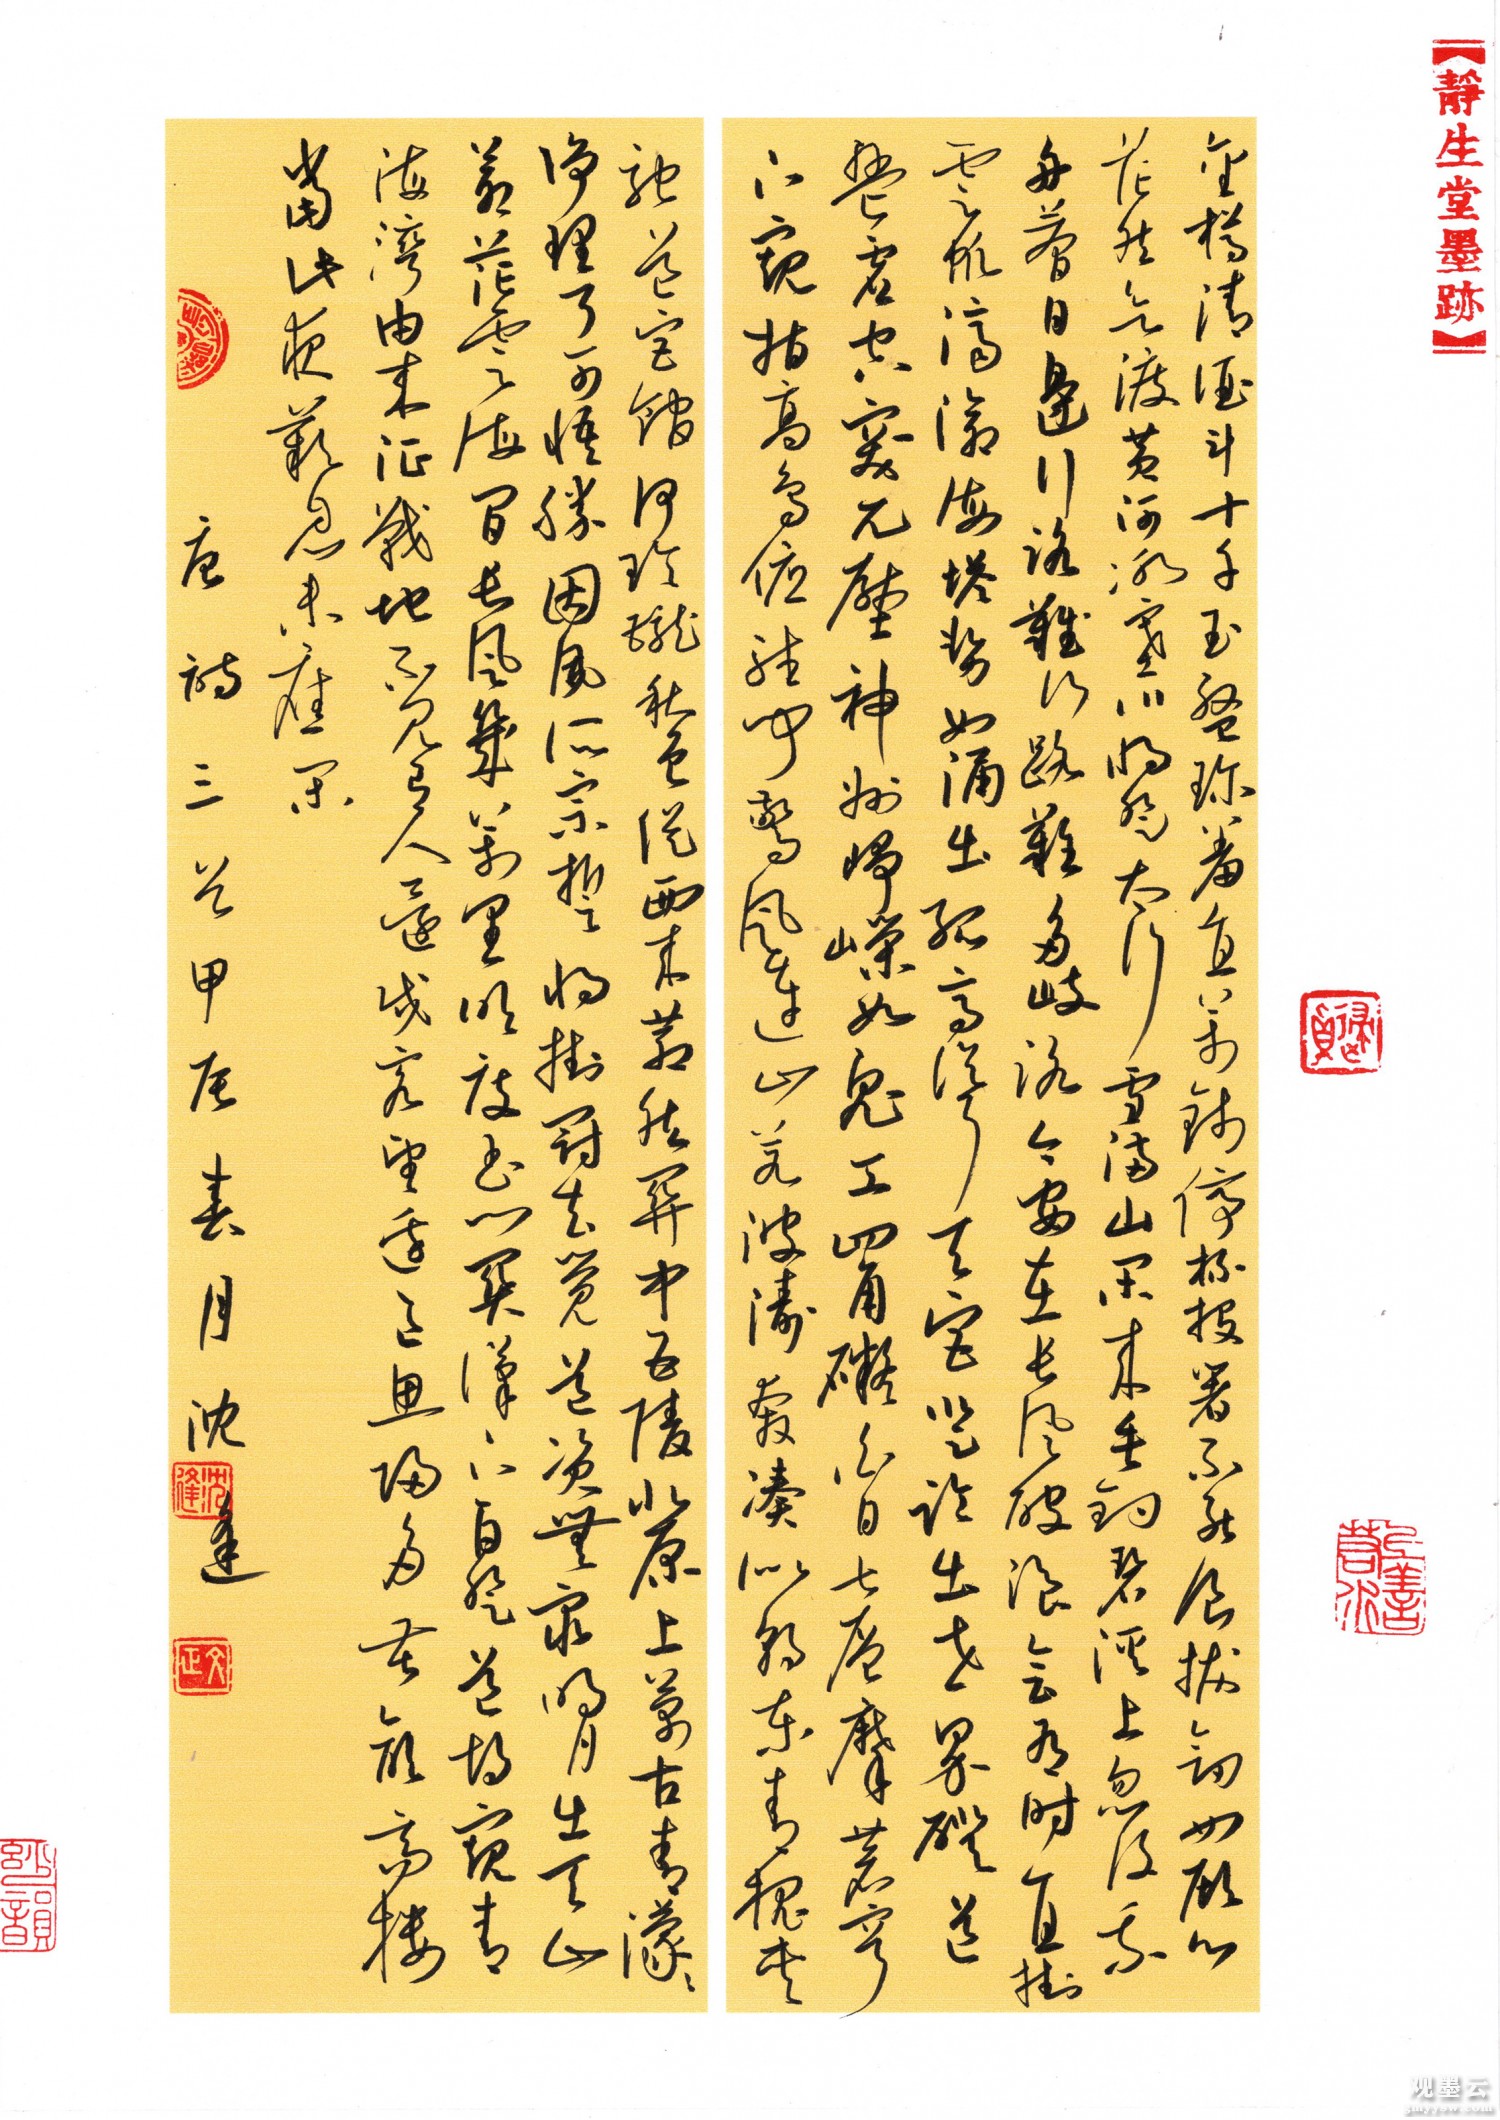 靜生堂墨跡
金樽清酒斗十千玉盤珍羞直萬錢停杯投箸不能食拔劍四顧心
茫然欲渡黃河冰塞川將登太行雪滿山閑來垂釣碧溪上忽復乘
舟夢日邊行路難行路難多岐路今安在長風破浪會有時直掛
雲帆濟滄海塔勢如湧出孤高聳天宮登臨出世界磴道
盤虛空突兀壓神州崢嶸如鬼工四角礙白日七層摩蒼穹
下窺指高鳥俯聽聞驚風連山若波濤奔湊似朝東青槐夾
馳道宮館何玲瓏秋色從西來蒼然關中五陵北原上萬古青濛濛
淨理了可悟勝因夙所宗誓將掛冠去覺道資無窮明月出天山
蒼茫雲海間長風幾萬里吹度玉門關漢下白登道胡窺青
海灣由來征戰地不見有人還戍客望邊邑思歸多苦顏高樓
當此夜歎息未應閑
唐詩三首甲辰春月沈逢
观墨云
gmyyow.com